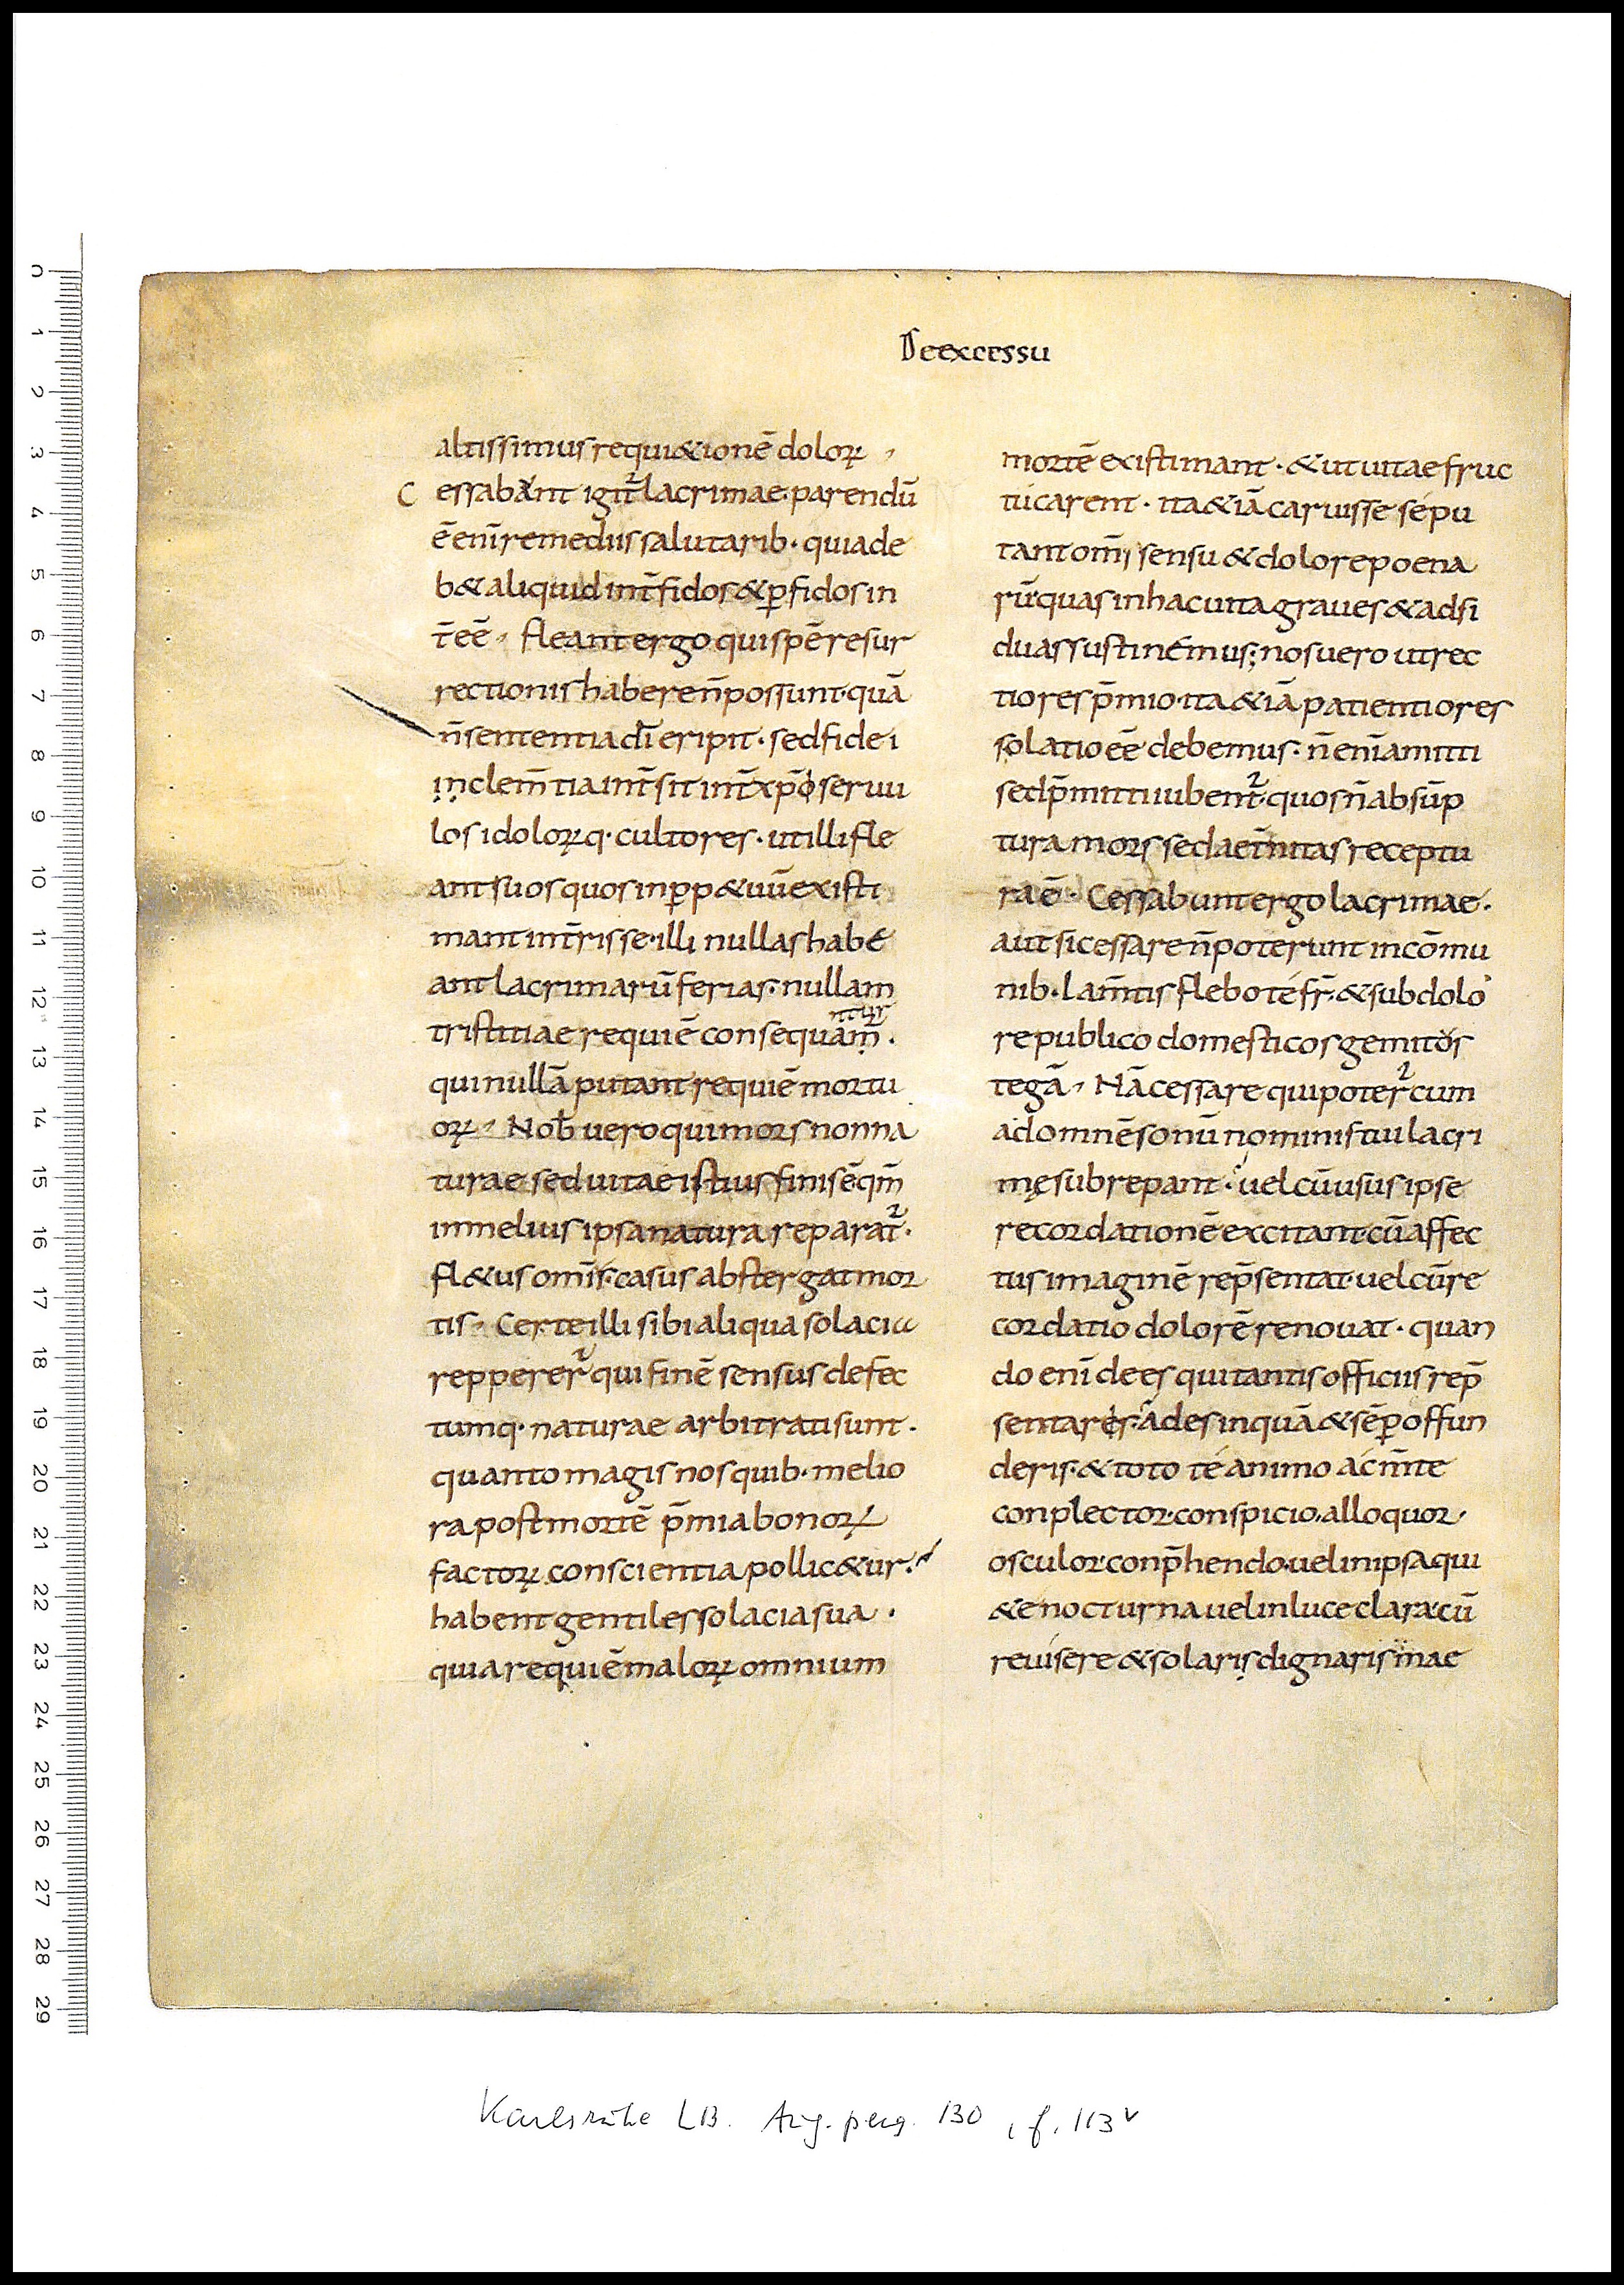 De excessu
altissimus requi&ionē dolorꝝ ,
C essabant igit᷑ lacrimae· parendū
ē eni̅ remediis salutarib· quia de
b& aliquid int̄ fidos & ꝑfidos in
t̄eē , fleant ergo qui spē resur
rectionis habere n̄ possunt· quā
n̄ sententia dī eripit · sed fidei
inclem̄tia int̄sit int̄ xp̄i seruu
los idolorꝝq· cultores · ut illi fle
ant suos quos in ꝑp&uū existi
mant int̄risse· illi nullas habe
ant lacrimarū ferias· nullam
ntur
tristitiae requiē consequam̄ .
qui nullā putant requiē mortu
orꝝ , Nob̄ uero qui mors non na
turae sed uitae istius finis ē qm̄
in melius ipsa natura reparat᷑ ·
fl&us om̄is· casus abstergat mor
tis , Certe illi sibi aliqua solacia
reppereR᷑ qui finē sensus defec
tumq· naturae arbitrati sunt .
quanto magis nos quib· melio
ra post mortē p̄mia bonorꝝ
factorꝝ conscientia pollic&ur.
habent gentiles solacia sua ·
quia requiē malorꝝ omnium
mortē existimant · & ut uitae fruc
tú carent · ita &iā caruisse sé pu
tant om̄i sensu & dolore poena
rū quas in hac uita graues & adsi
duas sustinémus; nos uero ut rec
tiores p̄mio· ita &iā patientiores
solatio eē debemus· n̄ eni̅ amitti
sed p̄mitti iubent᷑· quos n̄ absūp
tura mors sed aet̄nitas receptu
ra ē · Cessabunt ergo lacrimae ·
aut si cessare n̄ poterunt in cōmu
nib· lam̄tis flebo té fr̄· & sub dolo
re publico domesticos gemitos
tegā , Nā cessare qui poter᷑ cum
ad omnē sonū nominis tui lacri
mę subrepant · uel cū usus ipse
recordationē excitant· cū affec
tus imaginē rep̄sentat· uel cū re
cordatio dolorē renouat · quan
do eni̅ dees qui tantis officiis rep̄
sentaris· Ades inquā & sēꝑ offun
deris· & toto té animo ác m̄te
conplector· conspicio, alloquor·
osculor· conp̄hendo· uel in ipsa qui
&e nocturna uel in luce clara· cū
reuisere & solaris dignaris mae
0
1
2
3
4
5
6
7
8
9
10
11
12
13
14
15
16
17
18
19
20
21
22
23
24
25
26
27
28
29
Karlsruhe LB. Aug. perg. 130, f. 113v